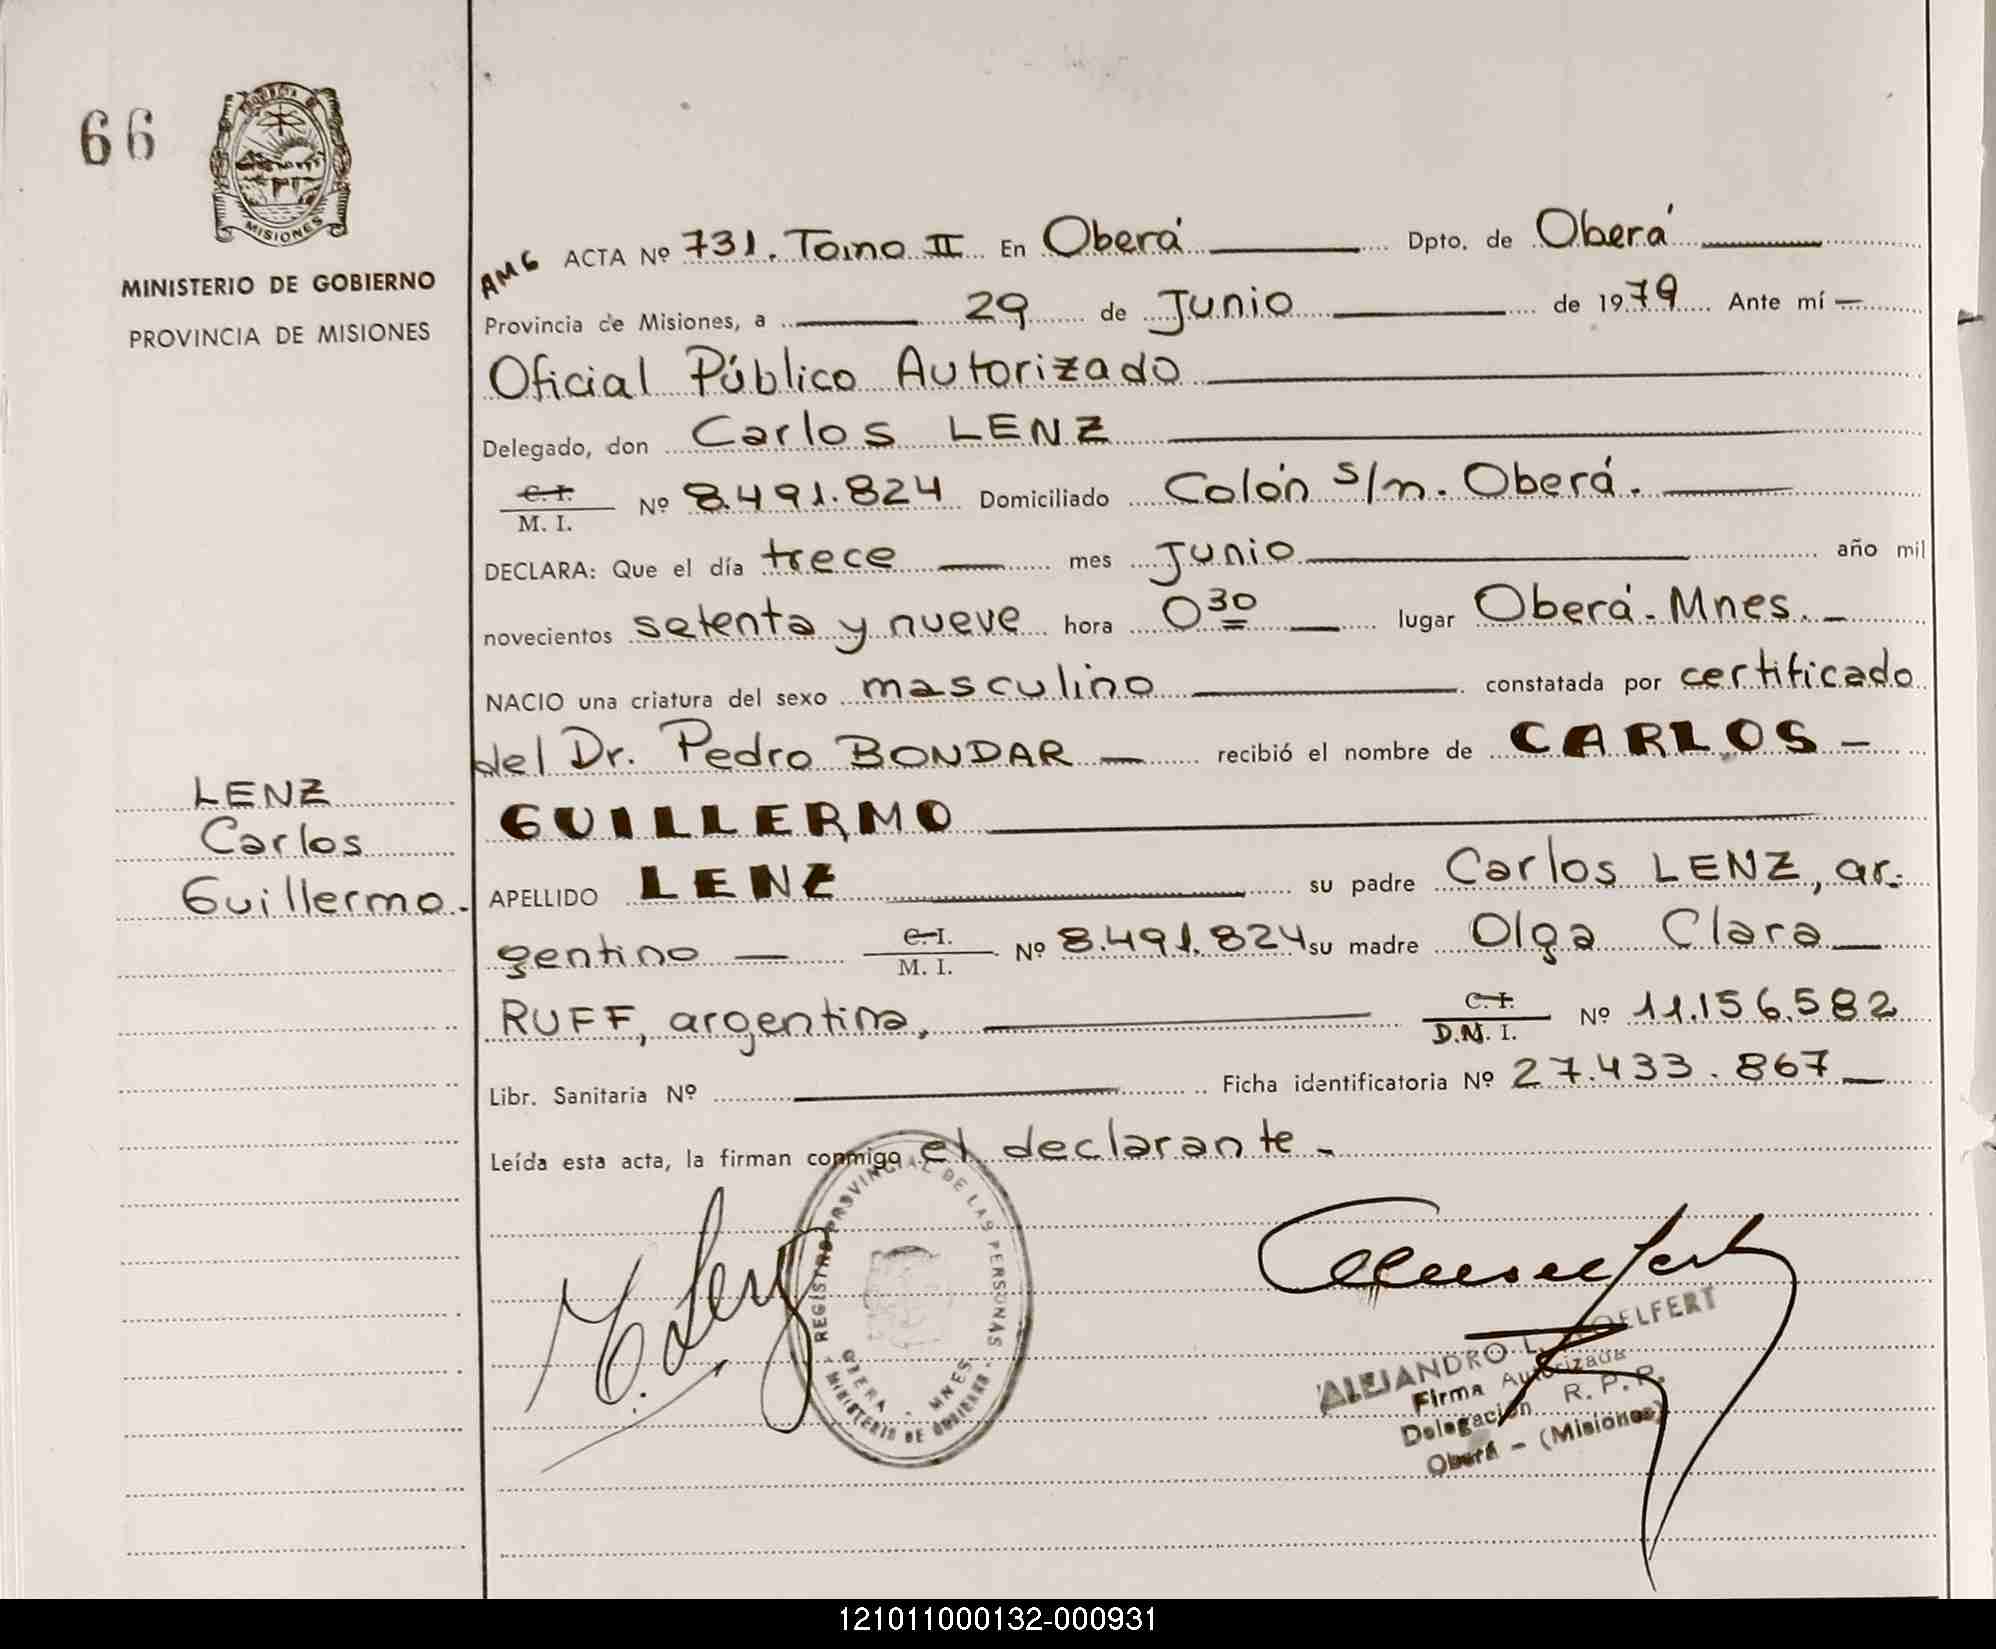 66
PROVINCIA DE
MISIONES
MINISTERIO DE GOBIERNO
PROVINCIA DE MISIONES
LENZ
Carlos
Guillermo.
AMG ACTA Nº 731. Tomo II En Oberá Dpto. de Oberá
Provincia de Misiones, a 29 de Junio de 1979 Ante mí
Oficial Público Autorizado
Delegado, don Carlos LENZ
C. I.
M. I. Nº 8.491.824 Domiciliado Colón s/n. Oberá.
DECLARA: Que el día trece mes Junio año mil
novecientos setenta y nueve hora 0 30 lugar Oberá-Mnes.
NACIO una criatura del sexo masculino constatada por certificado
del Dr. Pedro BONDAR recibió el nombre de CARLOS
GUILLERMO
APELLIDO LENZ su padre Carlos LENZ, ar-
gentino C. I. M. I. Nº 8.491.824 su madre Olga Clara
RUFF, argentina, C. I. D.N. I. Nº 11.156.582
Libr. Sanitaria Nº Ficha identificatoria Nº 27.433.867
Leída esta acta, la firman conmigo el declarante.
REGISTRO PROVINCIAL DE LAS PERSONAS
OBERA - MNES.
MINISTERIO DE GOBIERNO
ALEJANDRO L.
Firma Autorizada
Delegación R. P. P.
Oberá - (Misiones)
121011000132-000931